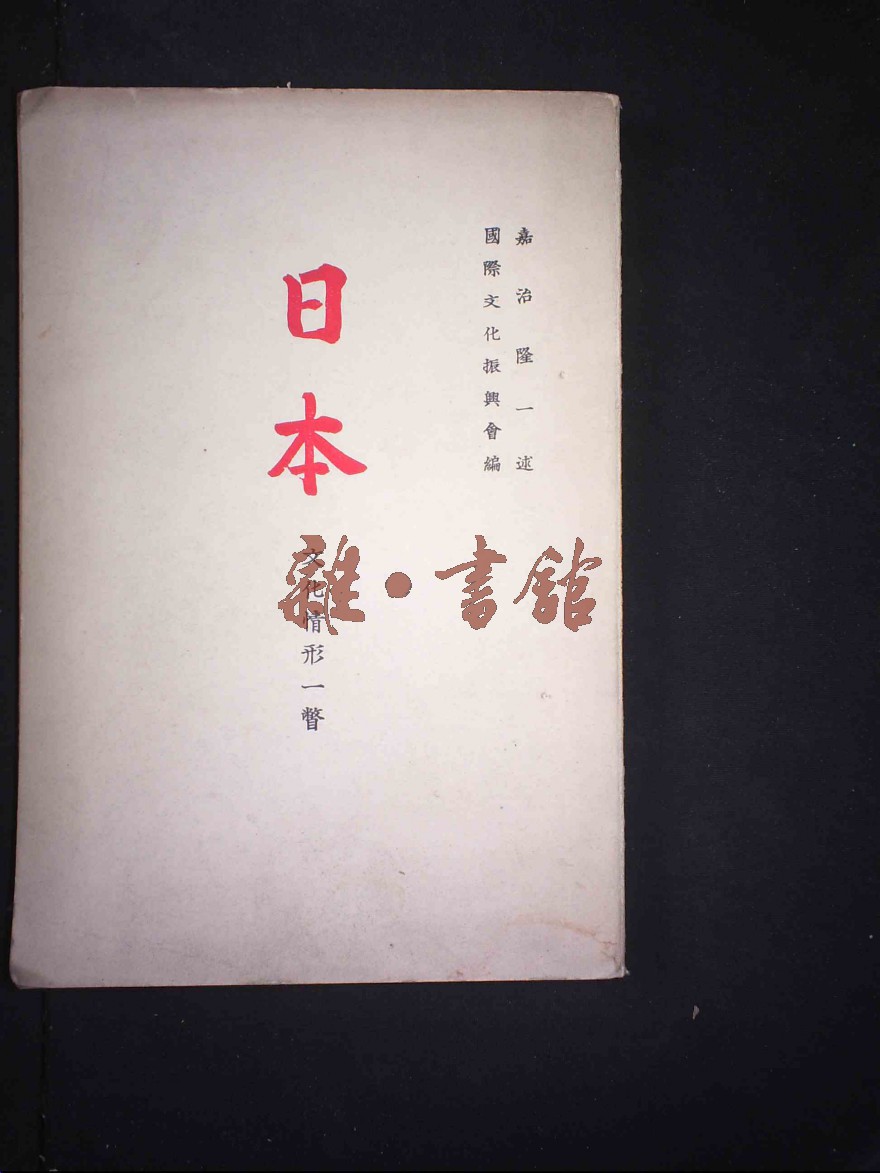 嘉治隆一述
國際文化振興會編
日本
文化情形一瞥
雜·書館